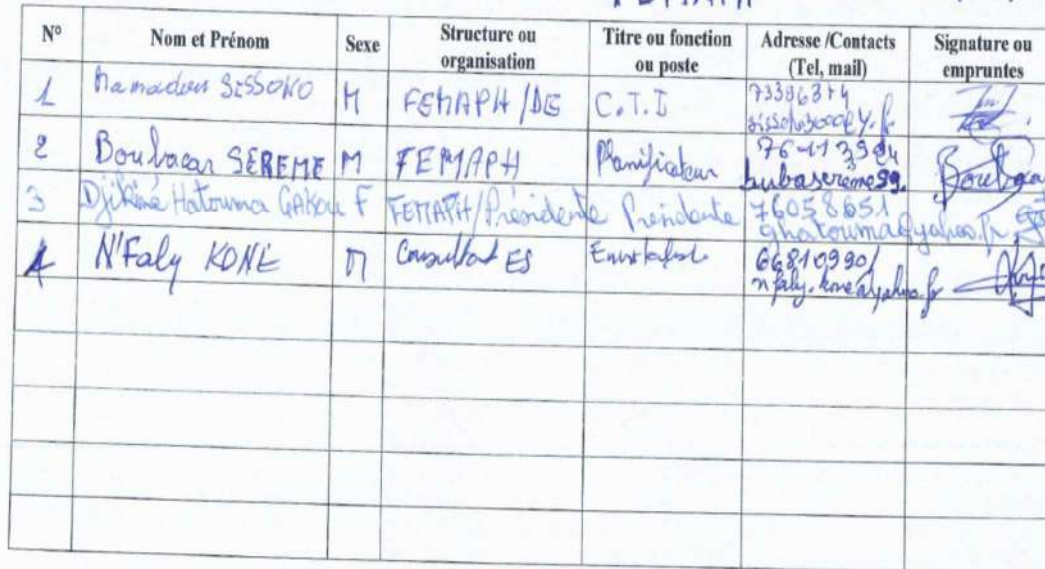 FEMAPH
N° Nom et Prénom Sexe Structure ou organisation Titre ou fonction ou poste Adresse /Contacts (Tel, mail) Signature ou empruntes
1 Mamadou SISSOKO M FEMAPH /DE C.T.I
2 Boubacar SEREME M FEMAPH Planificateur
3 Djikiné Hatouma GAKOU F FEMAPH/Présidente Présidente 76058651 ghatouma@yahoo.fr
4 N'Faly KONE M Consultant ES 66810990/ nfaly.kone@yahoo.fr